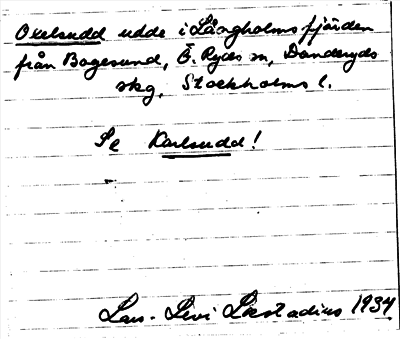 Oxelsudd udde i Långholmsfjärden
från Bogesund, Ö. Ryds sn, Danderyds
skg, Stockholms l.
Se Karlsudd!
Lars-Levi Læstadius 1934